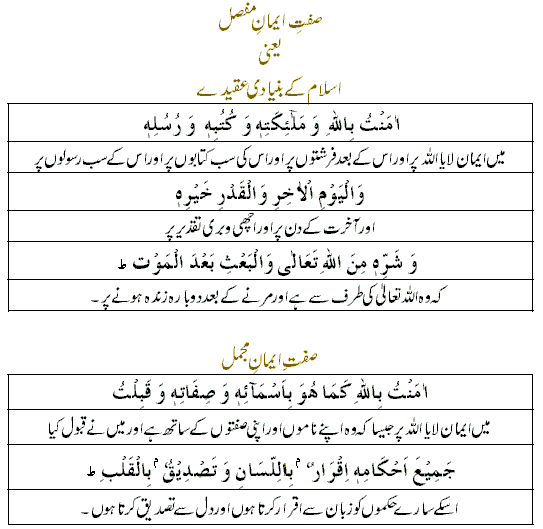 صفتِ ایمانِ مفصل
یعنی
اسلام کے بنیادی عقیدے
اٰمَنْتُ بِاللهِ وَ مَلٰٓئِکَتِهٖ وَ کُتُبِهٖ وَ رُسُلِهٖ
میں ایمان لایا اللہ پر اور اس کے بعد فرشتوں پر اور اس کی سب کتابوں پر اور اس کے سب رسولوں پر
وَالْیَوْمِ الْاٰخِرِ وَالْقَدْرِ خَیْرِهٖ
اور آخرت کے دن پر اور اچھی و بری تقدیر پر
وَ شَرِّهٖ مِنَ اللهِ تَعَالٰی وَالْبَعْثِ بَعْدَ الْمَوْتِ ط
کہ وہ اللہ تعالیٰ کی طرف سے ہے اور مرنے کے بعد دوبارہ زندہ ہونے پر ۔
صفتِ ایمانِ مجمل
اٰمَنْتُ بِاللهِ کَمَا هُوَ بِاَسْمَآئِهٖ وَ صِفَاتِهٖ وَ قَبِلْتُ
میں ایمان لایا اللہ پر جیسا کہ وہ اپنے ناموں اور اپنی صفتوں کے ساتھ ہے اور میں نے قبول کیا
جَمِیْعَ اَحْکَامِهٖ اِقْرَارٌ ۢ بِاللِّسَانِ وَ تَصْدِیْقٌ ۢ بِالْقَلْبِ ط
اسکے سارے حکموں کو زبان سے اقرار کرتا ہوں اور دل سے تصدیق کرتا ہوں ۔